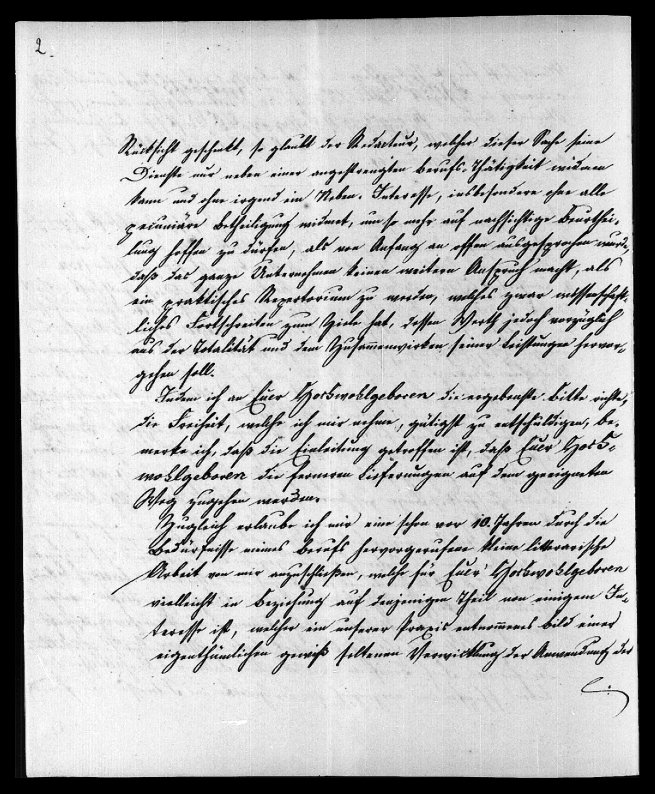 2.
Rücksicht gehabt, so glaubt der Redacteur, welcher dieser Sache seine
Dienste nur neben einer angestrengten Berufs-Thätigkeit widmen
kann und ohne irgend ein Neben-Interesse, insbesondere ohne alle
pecuniäre Betheiligung widmet, um so mehr auf nachsichtige Beurthei-
lung hoffen zu dürfen, als von Anfang an offen ausgesprochen wurde,
daß das ganze Unternehmen keinen weitern Anspruch macht, als
ein praktisches Repertorium zu werden, welches zwar wissenschaft-
liches Fortschreiten zum Ziele hat, dessen Werth jedoch vorzüglich
aus der Totalität und dem Zusammenwirken seiner Leistungen hervor-
gehen soll.
Indem ich an Euer Hochwohlgeboren die ergebenste Bitte richte,
die Freiheit, welche ich mir nehme, gütigst zu entschuldigen, be-
merke ich, daß die Einleitung getroffen ist, daß Euer Hoch-
wohlgeboren die ferneren Lieferungen auf dem geeigneten
Weg zugehen werden.
Zugleich erlaube ich mir eine schon vor 10 Jahren durch die
Bedürfnisse meines Berufs hervorgerufene kleine litterarische
Arbeit von mir anzuschließen, welche für Euer Hochwohlgeboren
vielleicht in Beziehung auf denjenigen Theil von einigem In-
teresse ist, welcher ein unserer Praxis entnommenes Bild einer
eigenthümlichen gewiß seltenen Verwicklung der Anwendung der